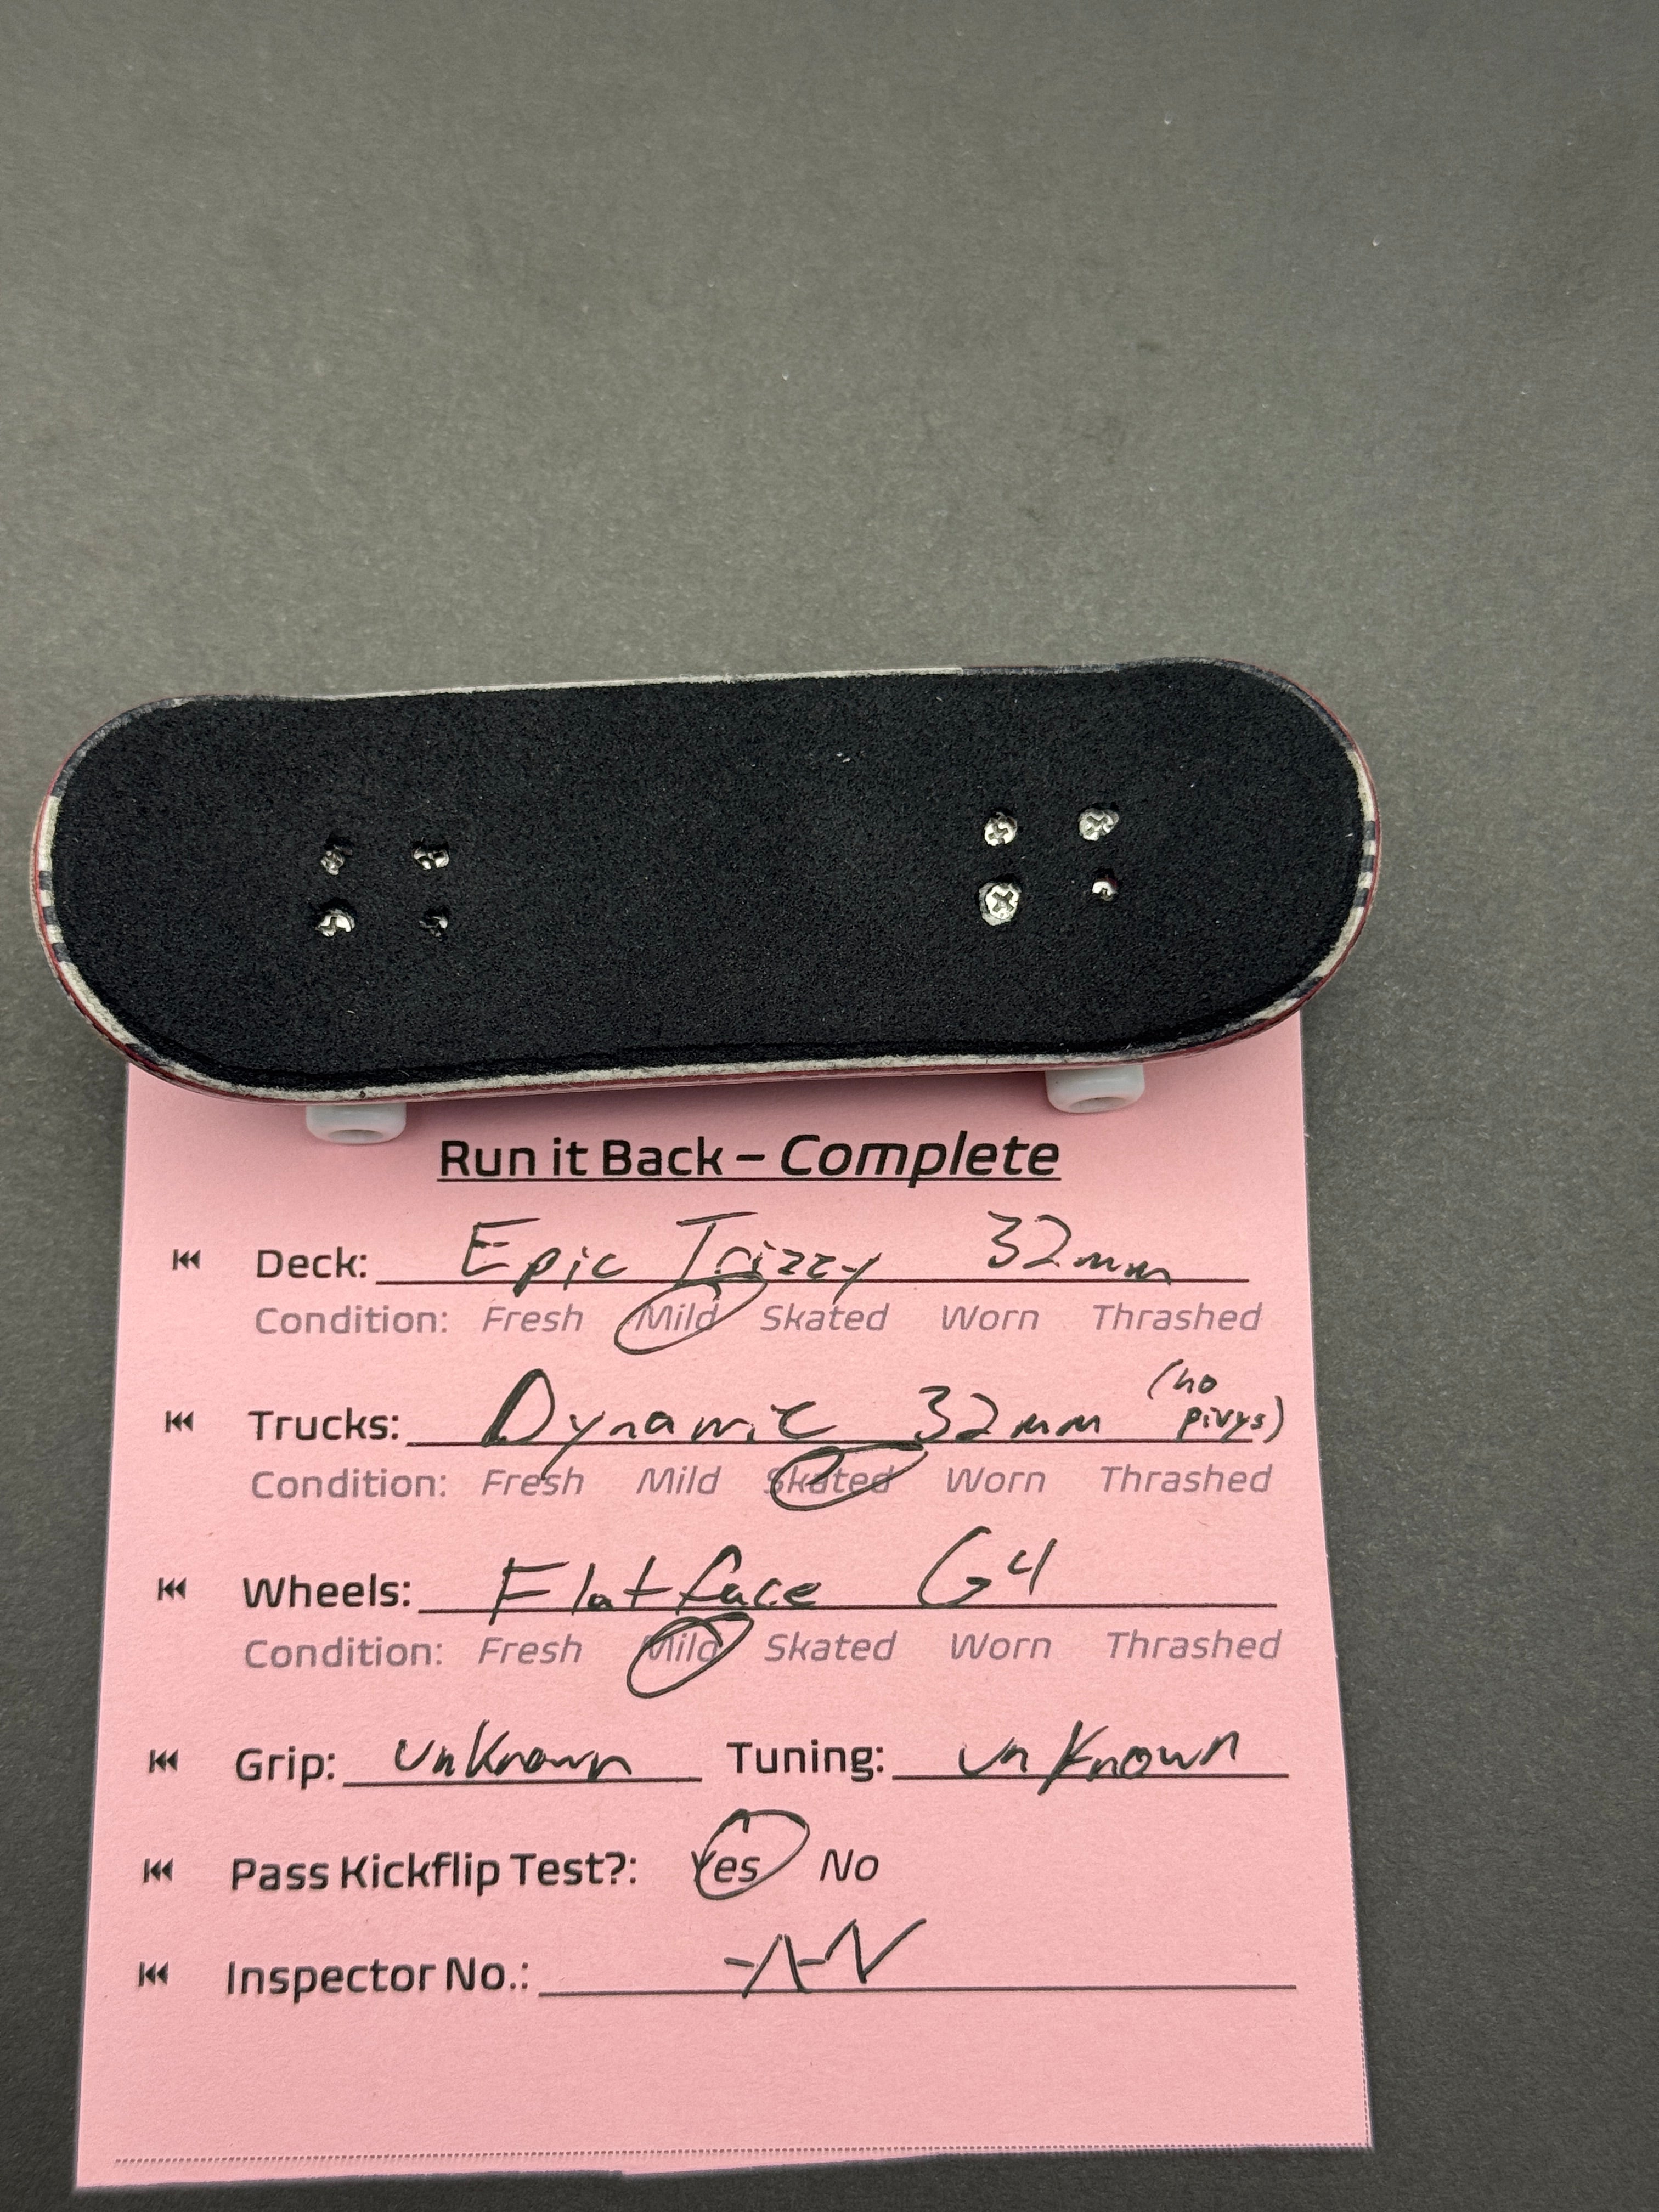 Run it Back – Complete
Deck: Epic Trizzy 32mm
Condition: Fresh Mild Skated Worn Thrashed
Trucks: Dynamic 32mm (no pivys)
Condition: Fresh Mild Skated Worn Thrashed
Wheels: Flatface G4
Condition: Fresh Mild Skated Worn Thrashed
Grip: unknown Tuning: unknown
Pass Kickflip Test?: Yes No
Inspector No.: